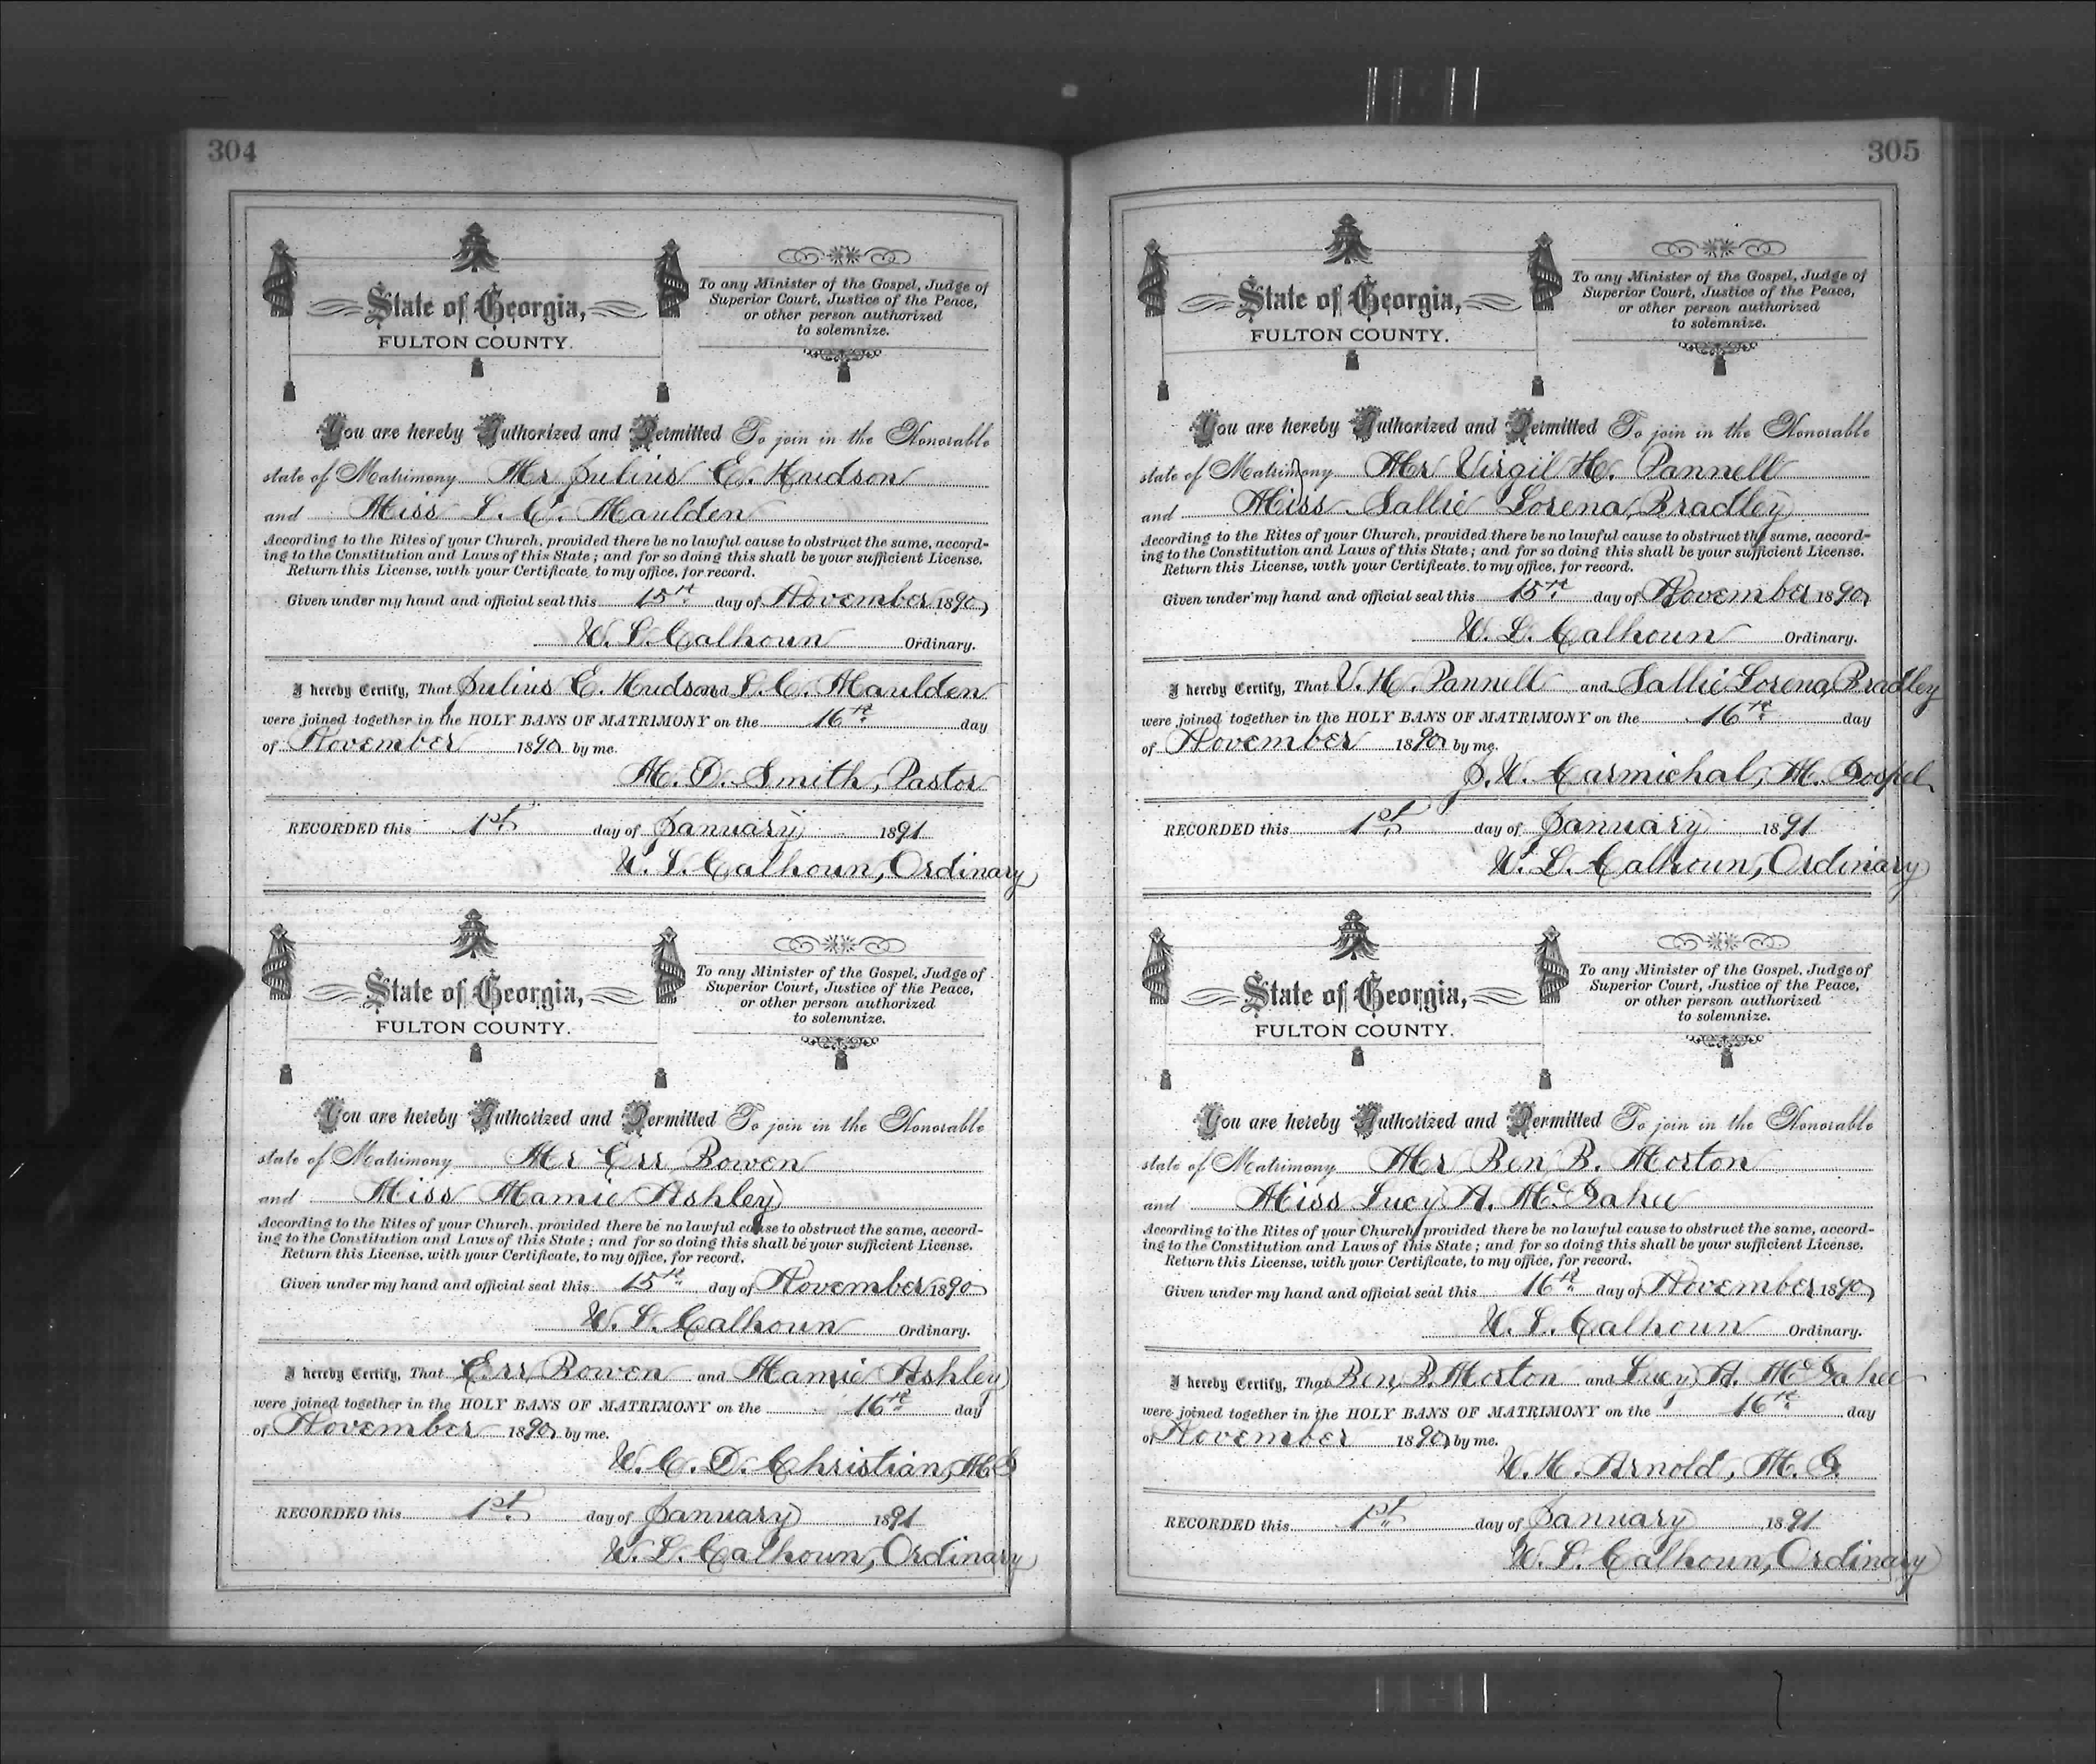 304
State of Georgia,
FULTON COUNTY.
To any Minister of the Gospel, Judge of
Superior Court, Justice of the Peace,
or other person authorized
to solemnize.
You are hereby Authorized and Permitted To join in the Honorable
state of Matrimony Mr Julius E. Hudson
and Miss L. C. Maulden
According to the Rites of your Church, provided there be no lawful cause to obstruct the same, accord-
ing to the Constitution and Laws of this State; and for so doing this shall be your sufficient License.
Return this License, with your Certificate, to my office, for record.
Given under my hand and official seal this 15th day of November 1890
W. L. Calhoun Ordinary.
I hereby Certify, That Julius E. Hudson and L. C. Maulden
were joined together in the HOLY BANS OF MATRIMONY on the 16th day
of November 1890 by me.
M. D. Smith, Pastor
RECORDED this 1st day of January 1891
W. L. Calhoun, Ordinary
State of Georgia,
FULTON COUNTY.
To any Minister of the Gospel, Judge of
Superior Court, Justice of the Peace,
or other person authorized
to solemnize.
You are hereby Authorized and Permitted To join in the Honorable
state of Matrimony Mr Err Bowen
and Miss Mamie Ashley
According to the Rites of your Church, provided there be no lawful cause to obstruct the same, accord-
ing to the Constitution and Laws of this State; and for so doing this shall be your sufficient License.
Return this License, with your Certificate, to my office, for record.
Given under my hand and official seal this 15th day of November 1890
W. L. Calhoun Ordinary.
I hereby Certify, That Err Bowen and Mamie Ashley
were joined together in the HOLY BANS OF MATRIMONY on the 16th day
of November 1890 by me.
W. C. D. Christian, M G
RECORDED this 1st day of January 1891
W. L. Calhoun, Ordinary
305
State of Georgia,
FULTON COUNTY.
To any Minister of the Gospel, Judge of
Superior Court, Justice of the Peace,
or other person authorized
to solemnize.
You are hereby Authorized and Permitted To join in the Honorable
state of Matrimony Mr Virgil H. Pannell
and Miss Sallie Lorena Bradley
According to the Rites of your Church, provided there be no lawful cause to obstruct the same, accord-
ing to the Constitution and Laws of this State; and for so doing this shall be your sufficient License.
Return this License, with your Certificate, to my office, for record.
Given under my hand and official seal this 15th day of November 1890
W. L. Calhoun Ordinary.
I hereby Certify, That V. H. Pannell and Sallie Lorena Bradley
were joined together in the HOLY BANS OF MATRIMONY on the 16th day
of November 1890 by me.
J. W. Carmichal, M. Gospel
RECORDED this 1st day of January 1891
W. L. Calhoun, Ordinary
State of Georgia,
FULTON COUNTY.
To any Minister of the Gospel, Judge of
Superior Court, Justice of the Peace,
or other person authorized
to solemnize.
You are hereby Authorized and Permitted To join in the Honorable
state of Matrimony Mr Ben B. Morton
and Miss Lucy A. McGahee
According to the Rites of your Church, provided there be no lawful cause to obstruct the same, accord-
ing to the Constitution and Laws of this State; and for so doing this shall be your sufficient License.
Return this License, with your Certificate, to my office, for record.
Given under my hand and official seal this 16th day of November 1890
W. L. Calhoun Ordinary.
I hereby Certify, That Ben B. Morton and Lucy A. McGahee
were joined together in the HOLY BANS OF MATRIMONY on the 16th day
of November 1890 by me.
W. H. Arnold, M. G.
RECORDED this 1st day of January 1891
W. L. Calhoun, Ordinary